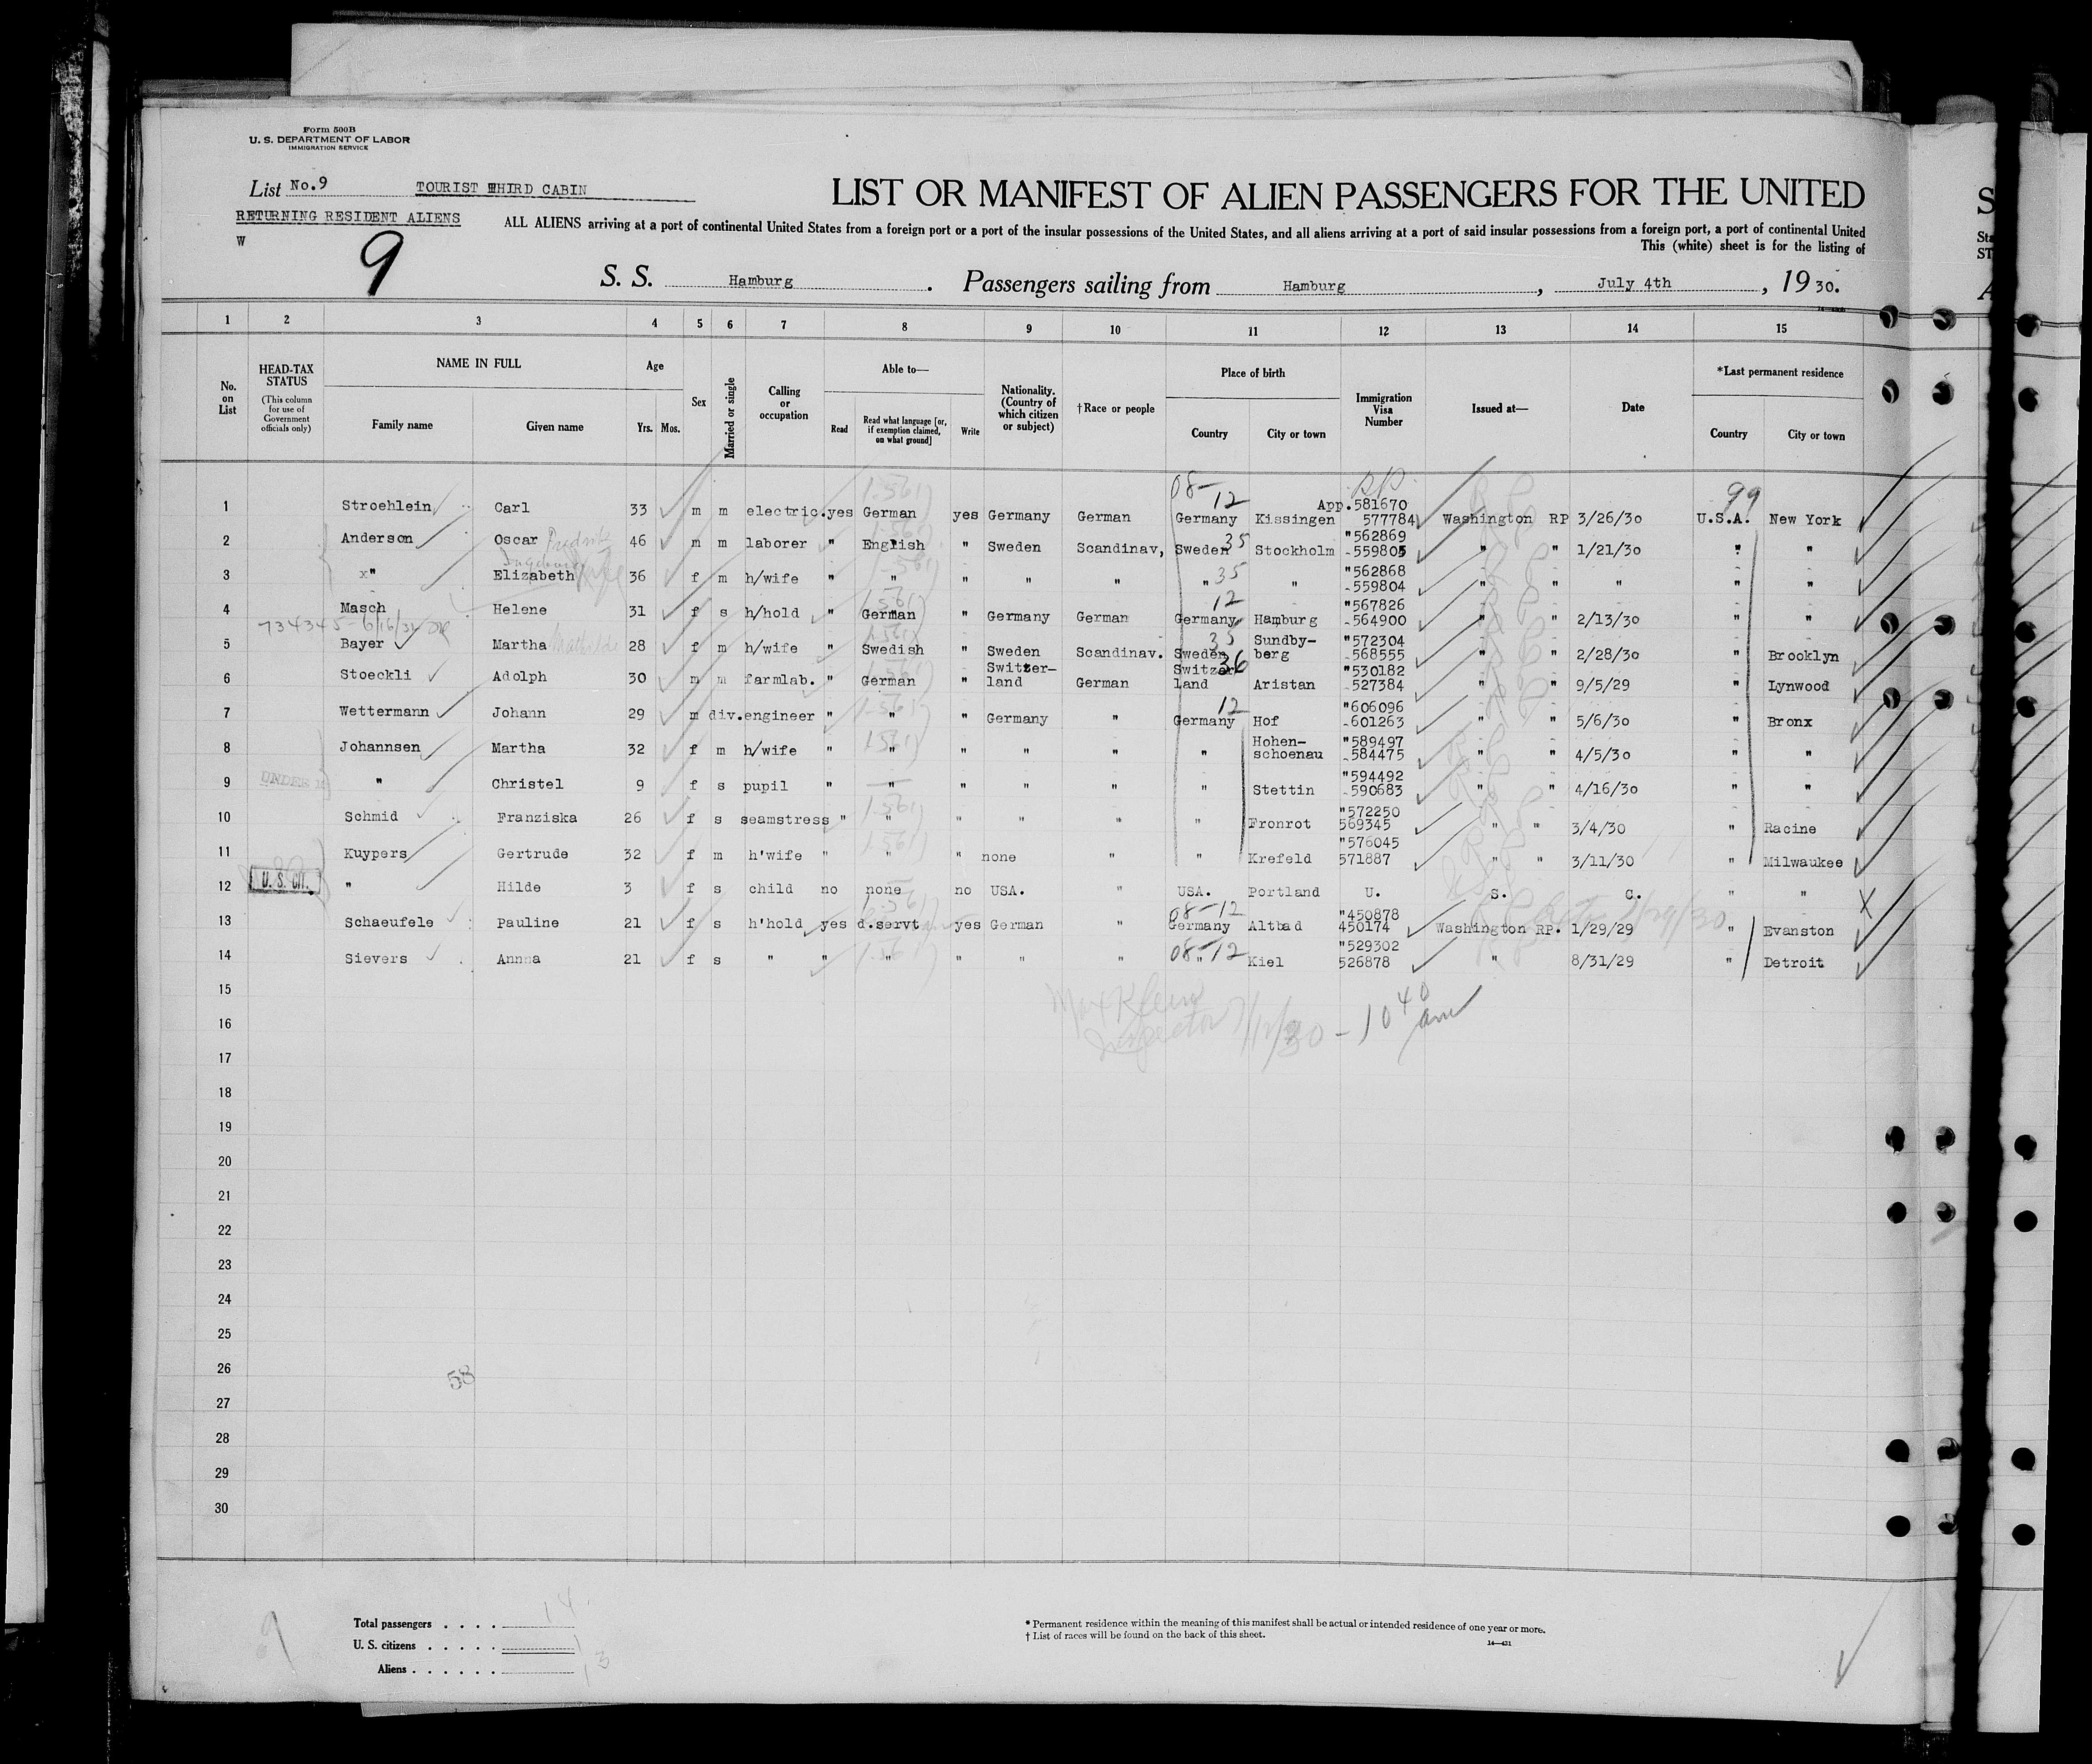 Form 500B
U. S. DEPARTMENT OF LABOR
IMMIGRATION SERVICE
List No.9 TOURIST THIRD CABIN
RETURNING RESIDENT ALIENS
W
9
LIST OR MANIFEST OF ALIEN PASSENGERS FOR THE UNITED
ALL ALIENS arriving at a port of continental United States from a foreign port or a port of the insular possessions of the United States, and all aliens arriving at a port of said insular possessions from a foreign port, a port of continental United
This (white) sheet is for the listing of
S. S. Hamburg . Passengers sailing from Hamburg , July 4th , 1930.
1 2 3 4 5 6 7 8 9 10 11 12 13 14 15
No. on List
HEAD-TAX STATUS (This column for use of Government officials only)
NAME IN FULL
Family name Given name
Age
Yrs. Mos.
Sex
Married or single
Calling or occupation
Able to—
Read
Read what language [or, if exemption claimed, on what ground]
Write
Nationality. (Country of which citizen or subject)
†Race or people
Place of birth
Country City or town
Immigration Visa Number
Issued at—
Date
*Last permanent residence
Country City or town
08- 12 RP 99
1 Stroehlein Carl 33 m m electric. yes German yes Germany German Germany Kissingen App.581670 577784 Washington RP 3/26/30 U.S.A. New York
2 Anderson Oscar Fredrik 46 m m laborer " English " Sweden Scandinav, Sweden 35 Stockholm "562869 -559805 " " 1/21/30 " "
3 x" Elizabeth 36 f m h/wife " " " " " " 35 " "562868 -559804 " " " " "
4 Masch Helene 31 f s h/hold " German " Germany German Germany 12 Hamburg "567826 -564900 " " 2/13/30 " "
734345-6/16/31
5 Bayer Martha Mathilde 28 f m h/wife " Swedish " Sweden Scandinav. Sweden 35 Sundby- berg "572304 -568555 " " 2/28/30 " Brooklyn
6 Stoeckli Adolph 30 m m farmlab. " German " Switzer- land German Switzer land 36 Aristan "530182 -527384 " " 9/5/29 " Lynwood
7 Wettermann Johann 29 m div. engineer " " " Germany " Germany 12 Hof "606096 -601263 " " 5/6/30 " Bronx
8 Johannsen Martha 32 f m h/wife " " " " " " Hohen- schoenau "589497 -584475 " " 4/5/30 " "
UNDER
9 " Christel 9 f s pupil " " " " " " Stettin "594492 -590683 " " 4/16/30 " "
10 Schmid Franziska 26 f s seamstress " " " " " " Fronrot "572250 569345 " " 3/4/30 " Racine
11 Kuypers Gertrude 32 f m h'wife " " " none " " Krefeld "576045 571887 " " 3/11/30 " Milwaukee
12 U. S. CIT. " Hilde 3 f s child no none no USA. " USA. Portland U. S. C. " " X
13 Schaeufele Pauline 21 f s h'hold yes d.servt yes German " 08-12 Germany Altbad "450878 450174 Washington RP. 1/29/29 " Evanston
14 Sievers Annna 21 f s " " " " " 08-12 " Kiel "529302 526878 " 8/31/29 " Detroit
15
Max Klein
16
Inspector 7/12/30 - 10 40 am
17
18
19
20
21
22
23
24
25
26
58
27
28
29
30
9
Total passengers . . . . 14
U. S. citizens . . . . . 1
Aliens . . . . . . 13
* Permanent residence within the meaning of this manifest shall be actual or intended residence of one year or more.
† List of races will be found on the back of this sheet.
14—431